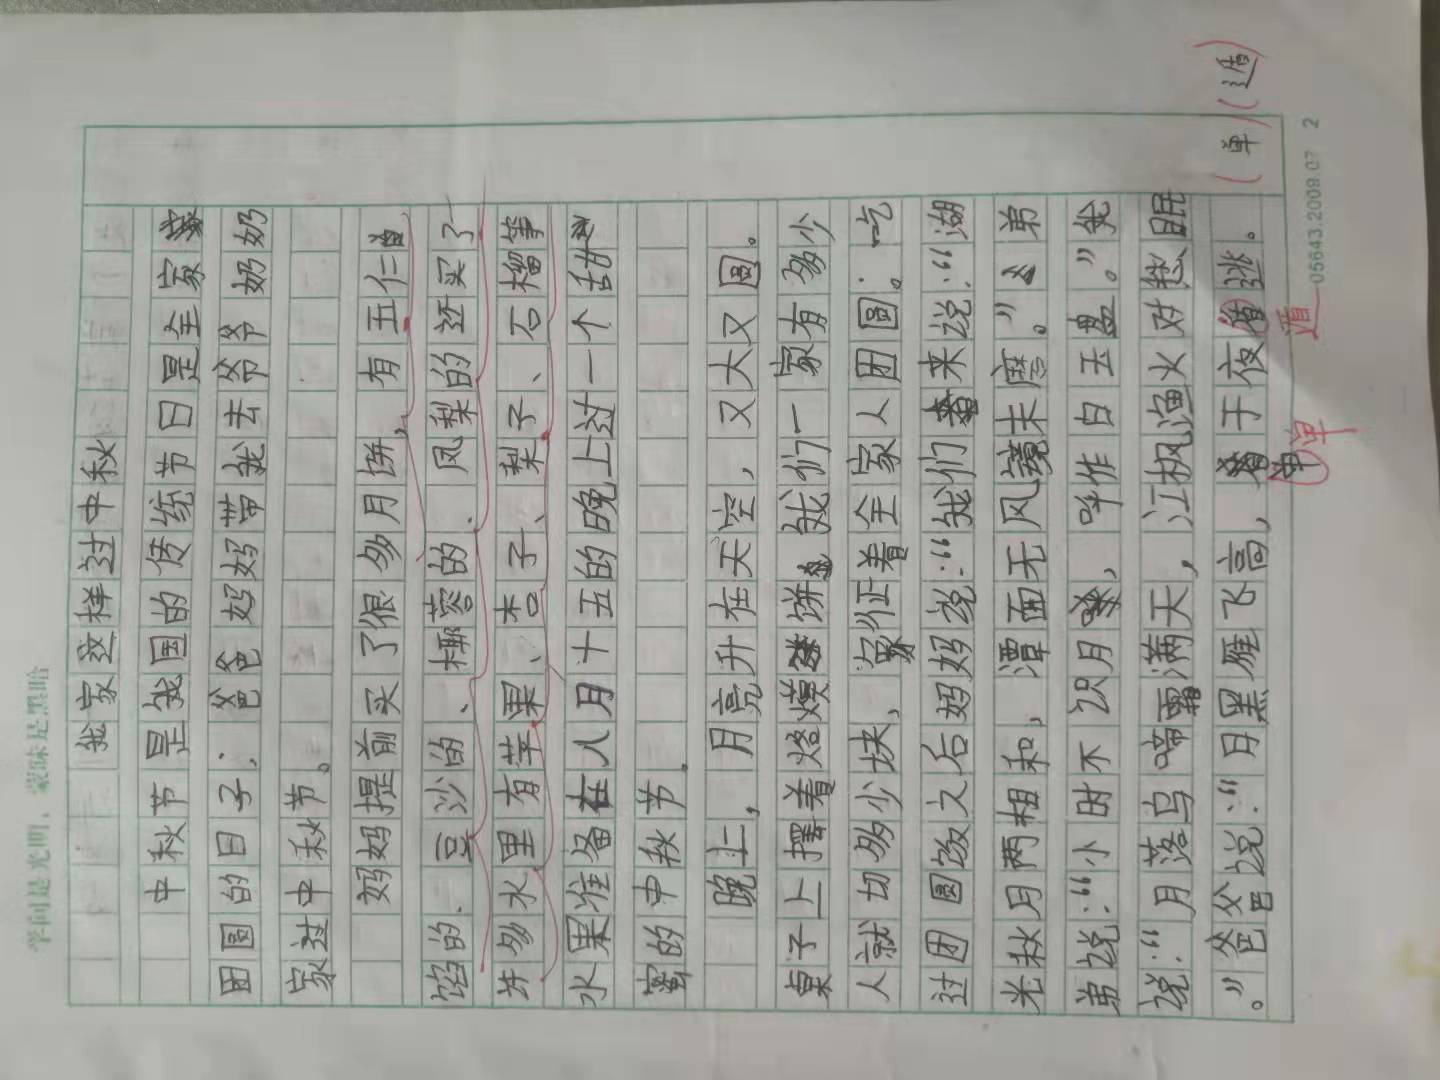 学问是光明，蒙昧是黑暗
我家这样过中秋
中秋节是我国的传统节日是全家
团圆的日子，爸爸妈妈带我去爷爷奶奶
家过中秋节。
妈妈提前买了很多月饼，有五仁
馅的、豆沙的、椰蓉的、凤梨的还买了
许多水里有苹果、杏子、梨子、石榴等
水果准备在八月十五的晚上过一个甜
蜜的中秋节。
晚上，月亮升在天空，又大又圆。
桌子上摆着烙馍饼我们一家有多少
人就切多少块，家征着全家人团圆。吃
过团圆饭之后妈妈说：“我们来说：“湖
光秋月两相和，潭面无风镜未磨。”弟
弟说：“小时不识月，呼作白玉盘。”我
说：“月落乌啼霜满天，江枫渔火对愁眠
。”爸爸说：“月黑雁飞高，单于夜遁逃。
单
遁
（单）（遁）
05643.2009.07 2